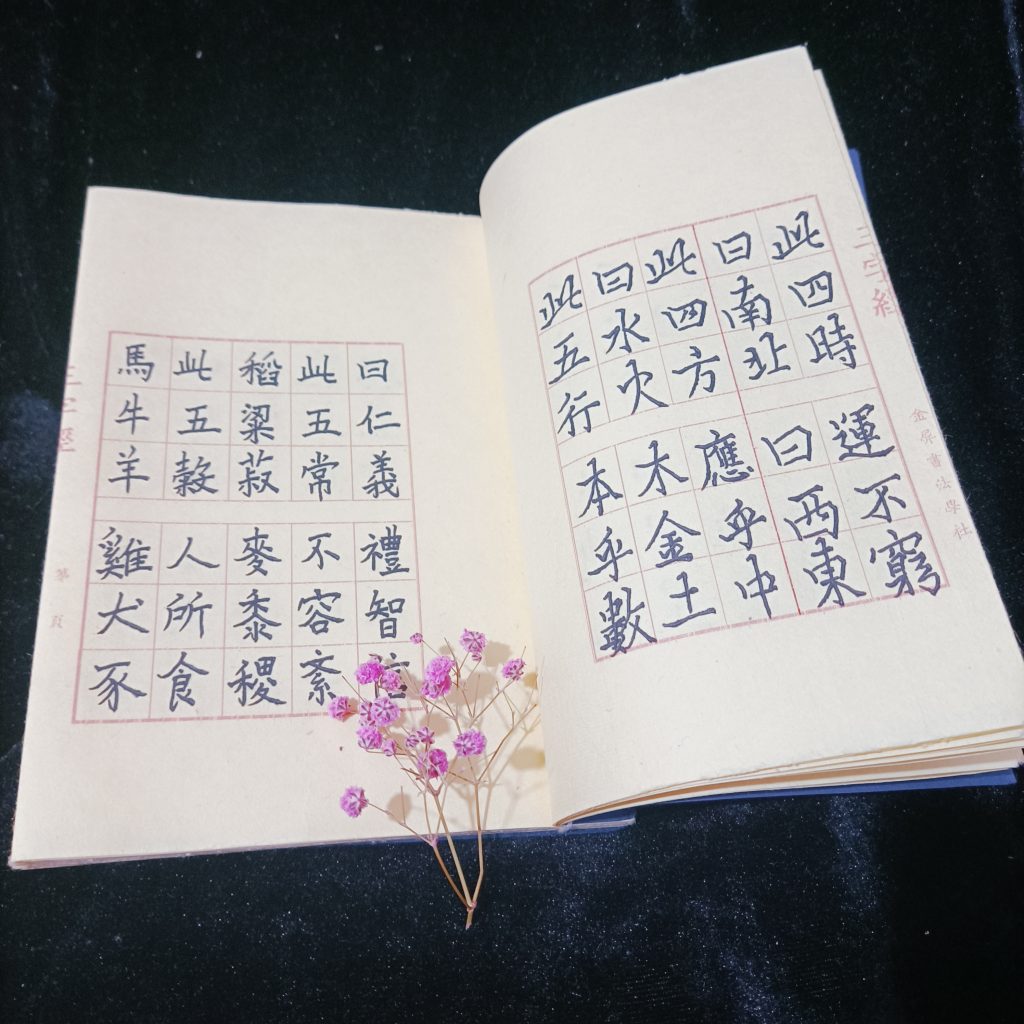 三字經
金屏書法學社
此四時運不窮
曰南北曰西東
此四方應乎中
曰水火木金土
此五行本乎數
曰仁義禮智信
此五常不容紊
稻粱菽麥黍稷
此五穀人所食
馬牛羊雞犬豕
三字經
第 頁